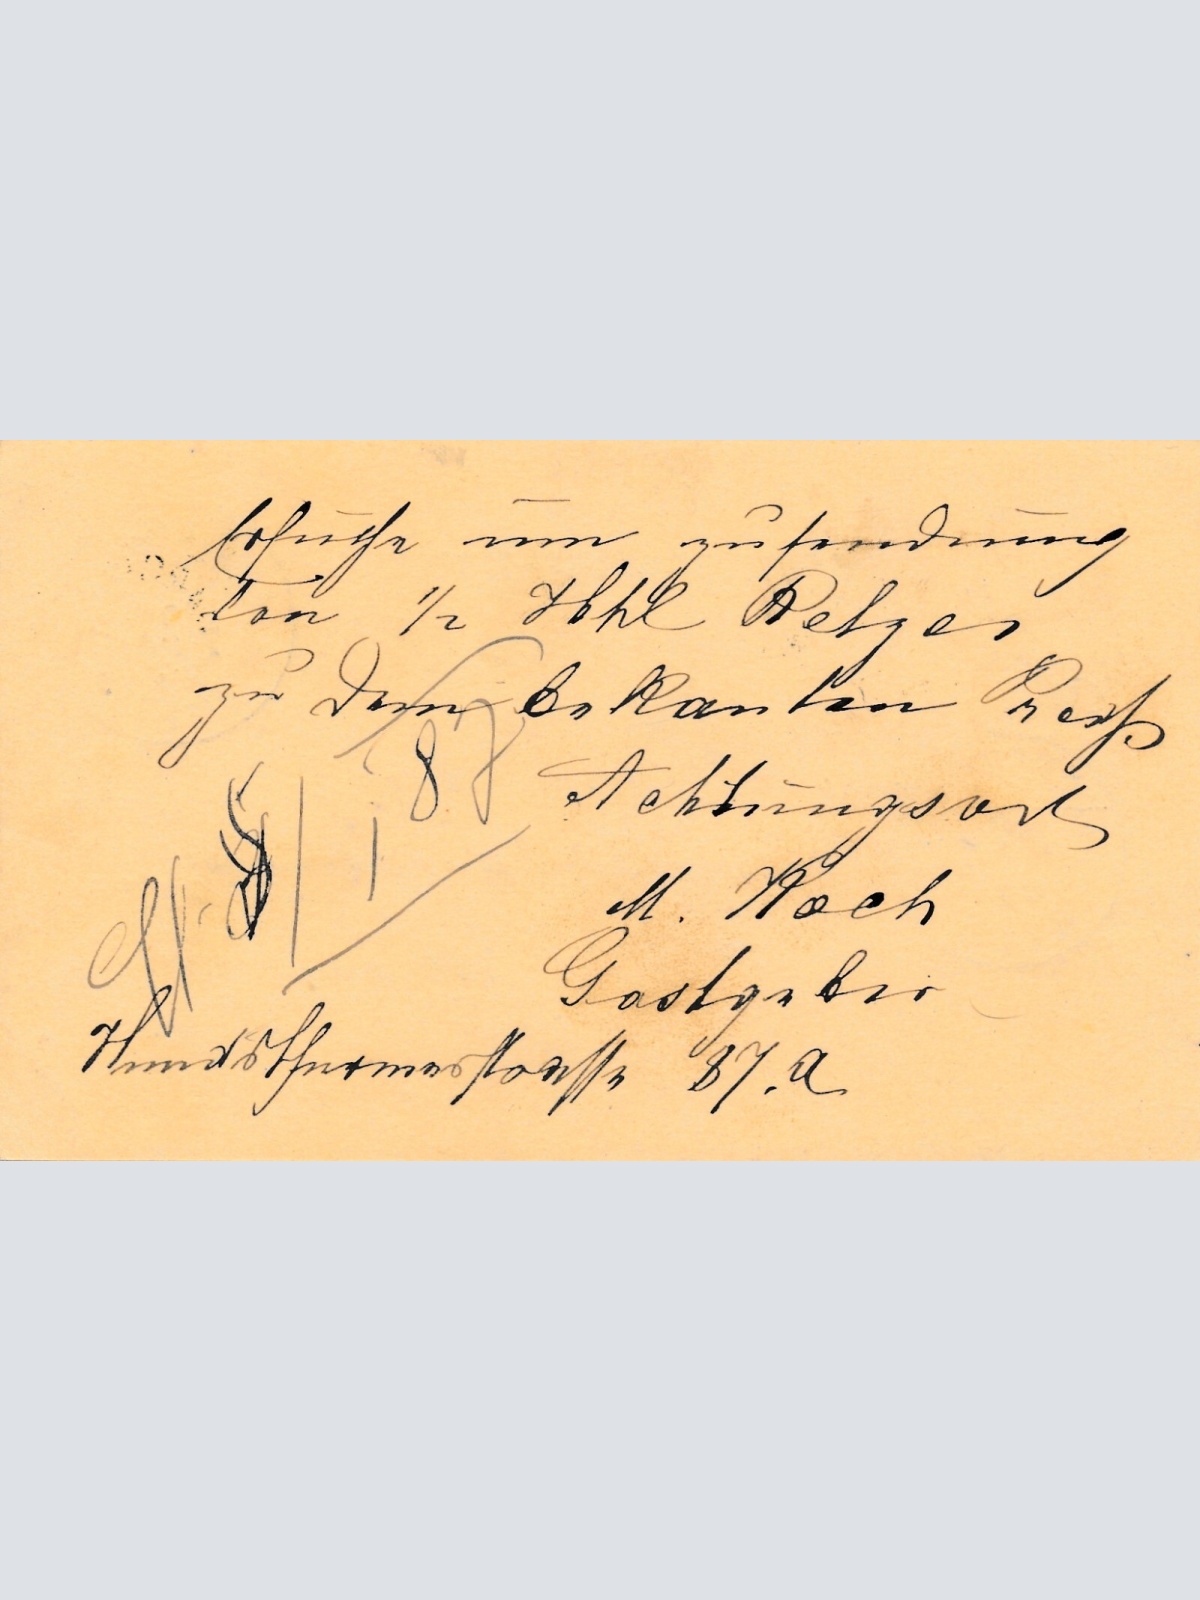 Ersuche um zusendung
von 1/2 Hhl Retzer
zu dem bekanten Preiß
Achtungsvoll
M. Koch
Gastgeber
Hundsthurmerstrasse 87.a